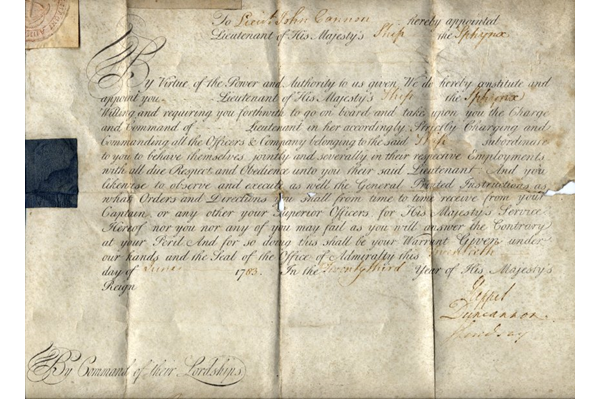 To Lieut. John Cannon hereby appointed
Lieutenant of His Majesty's Ship the Sphynx
By Virtue of the Power and Authority to us given We do hereby constitute and
appoint you Lieutenant of His Majesty's Ship the Sphynx
Willing and requiring you forthwith to go on board and take upon you the Charge
and Command of Lieutenant in her accordingly Strictly Charging and
Commanding all the Officers & Company belonging to the said Ship Subordinate
to you to behave themselves jointly and severally in their respective Employments
with all due Respect and Obedience unto you their said Lieutenant And you
likewise to observe and execute as well the General Printed Instructions as
what Orders and Directions you shall from time to time receive from your
Captain or any other your Superior Officers for His Majesty's Service
Hereof nor you nor any of you may fail as you will answer the Contrary
at your Peril And for so doing this shall be your Warrant Given under
our hands and the Seal of the Office of Admiralty this
day of June 1783. In the Twenty third Year of His Majesty's
Reign
Keppel
Duncannon
Lindsay
By Command of their Lordships